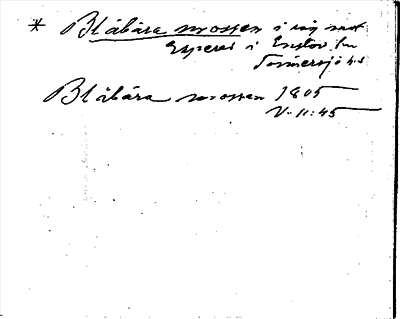 * Blåbära mossen i väg mot
Espered i Enslöv sn
Tönnersjö hd
Blåbära mossen 1805
V-11:45